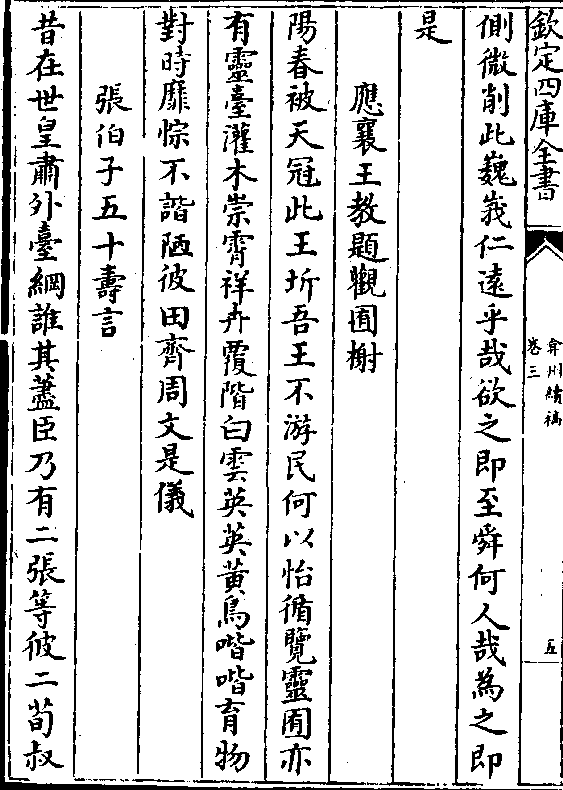 欽定四庫全書
弇州續稿
卷三
五
側微削此巍峩仁遠乎哉欲之即至舜何人哉為之即
是
應襄王教題觀囿榭
陽春被天冠此王圻吾王不游民何以怡循覽靈囿亦
有靈臺灌木崇霄祥卉覆階白雲英英黄鳥喈喈育物
對時靡悰不諧陋彼田齊周文是儀
張伯子五十壽言
昔在世皇肅外臺綱誰其藎臣乃有二張等彼二荀叔